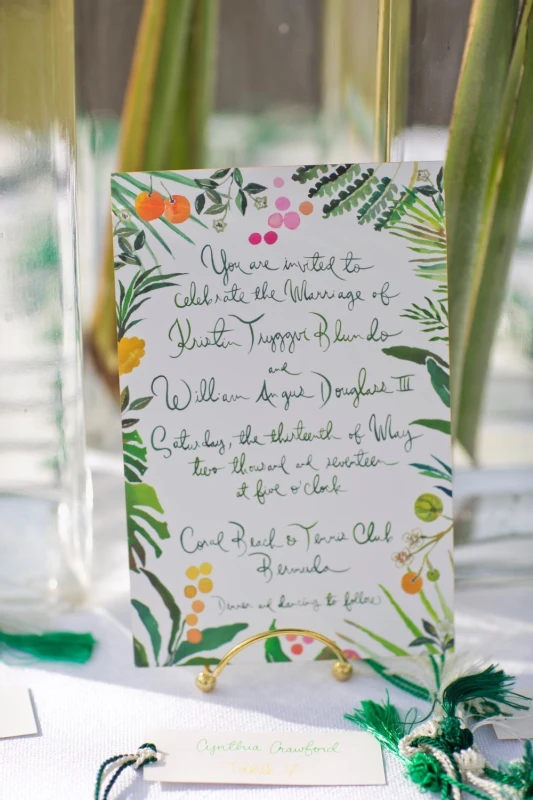 You are invited to
celebrate the Marriage of
Kristin Tryggvi Blundo
and
William Angus Douglass III
Saturday, the thirteenth of May
two thousand and seventeen
at five o'clock
Coral Beach & Tennis Club
Bermuda
Dinner and dancing to follow
Cynthia Crawford
Table